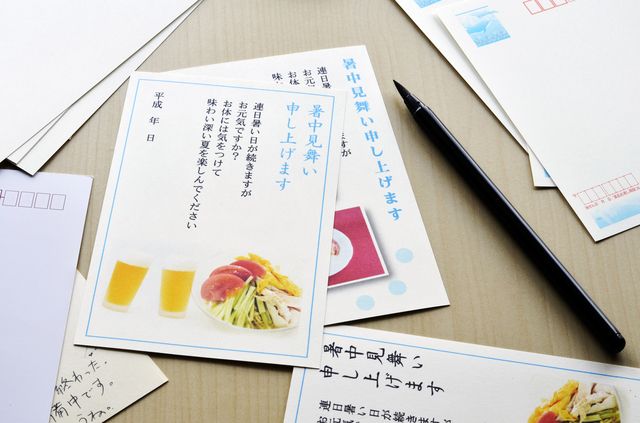 暑中見舞い
申し上げます
連日暑い日が続きますが
お元気ですか?
お体には気をつけて
味わい深い夏を楽しんでください
平成　年　日
暑中見舞い申し上げます
連日暑
お元
お体
味わ
すが
暑中見舞い
申し上げます
連日暑い日が続きますが
お元気ですか
終わった
備中です。
うね。